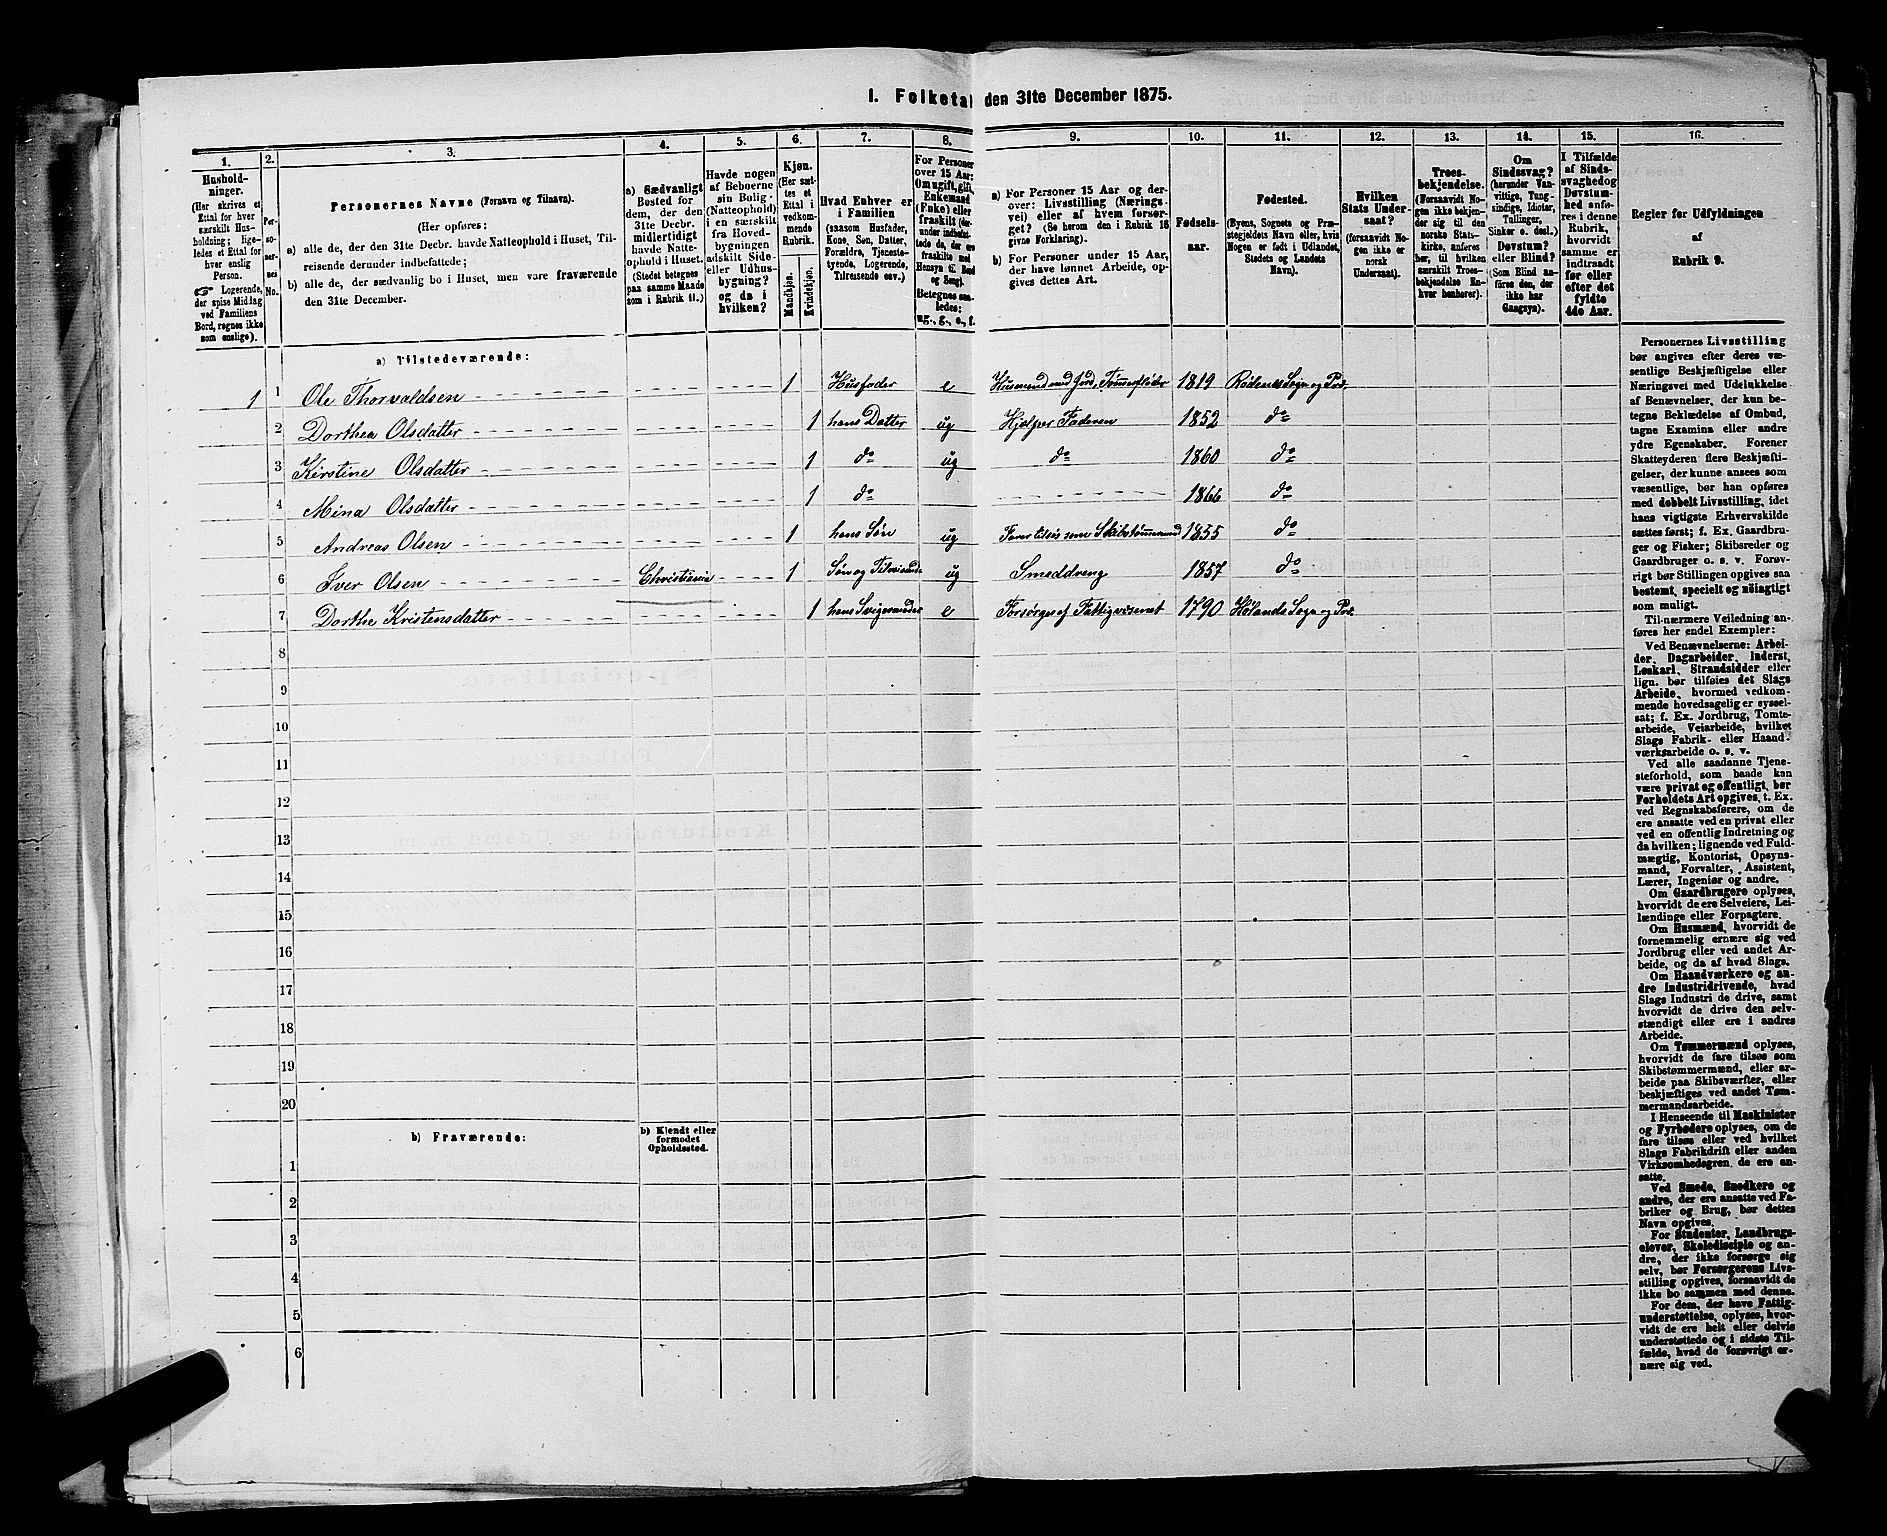 I. Folketal den 31te December 1875.
1. 2. 3. 4. 5. 6. 7. 8. 9. 10. 11. 12. 13. 14. 15. 16.
Husholdninger.
(Her skrives et Ettal for hver særskilt Husholdning; ligeledes et Ettal for hver enslig Person.
☞ Logerende, der spise Middag ved Familiens Bord, regnes ikke som enslige).
Personernes No.
Personernes Navne (Fornavn og Tilnavn).
(Her opføres:
a) alle de, der den 31te Decbr. havde Natteophold i Huset, Tilreisende derunder indbefattede;
b) alle de, der sædvanlig bo i Huset, men vare fraværende den 31te December.
a) Sædvanligt Bosted for dem, der den 31te Decbr. midlertidigt havde Natteophold i Huset. (Stedet betegnes paa samme Maade som i Rubrik 11.)
Havde nogen af Beboerne sin Bolig (Natteophold) i en særskilt fra Hovedbygningen adskilt Side- eller Udhusbygning? og da i hvilken?
Kjøn. (Her sættes et Ettal i vedkommende Rubrik.
Mandkjøn. Kvindekjøn.
Hvad Enhver er i Familien (saasom Husfader, Kone, Søn, Datter, Forældre, Tjenestetyende, Logerende, Tilreisende osv.)
For Personer over 15 Aar: Om ugift, gift, Enkemand (Enke) eller fraskilt (derunder indbefattede de, der ere fraskilte med Hensyn til Bord og Seng). Betegnes saaledes: ug., g., e., f.
a) For Personer 15 Aar og derover: Livsstilling (Næringsvei) eller af hvem forsørget? (Se herom den i Rubrik 16 givne Forklaring).
b) For Personer under 15 Aar, der have lønnet Arbeide, opgives dettes Art.
Fødselsaar.
Fødested.
(Byens, Sognets og Præstegjeldets Navn eller, hvis Nogen er født i Udlandet, Stedets og Landets Navn).
Hvilken Stats Undersaat?
(forsaavidt Nogen ikke er norsk Undersaat).
Troesbekjendelse.
(Forsaavidt Nogen ikke bekjender sig til den norske Statskirke, anføres her, til hvilken særskilt Troesbekjendelse Enhver henhører).
Om Sindssvag? (herunder Vanvittige, Tungsindige, Idioter, Tullinger, Sinker o. desl.) Døvstum? eller Blind? (Som Blind anføres den, der ikke har Gangsyn).
I Tilfælde af Sindssvaghed og Døvstumhed anføres i denne Rubrik, hvorvidt samme er indtraadt før eller efter det fyldte 4de Aar.
Regler for Udfyldningen af Rubrik 9.
a) Tilstedeværende:
1 1 Ole Thorvaldsen 1 Husfader e Husmand med Jord, Tømmerfløder 1819 Rødenes Sogn og Prd.
2 Dorthea Olsdatter 1 hans Datter ug Hjælper Faderen 1852 do
3 Kirstine Olsdatter 1 do ug do 1860 do
4 Mina Olsdatter 1 do 1866 do
5 Andreas Olsen 1 hans Søn ug Farer tilsøs som Skibstømmermand 1855 do
6 Iver Olsen Christiania 1 Søn og Tilreisende ug Smeddreng 1857 do
7 Dorthe Kristensdatter 1 hans Svigermoder e Forsørges af Fattigvæsenet 1790 Hølands Sogn og Prd.
8
9
10
11
12
13
14
15
16
17
18
19
20
b) Fraværende:
b) Kjendt eller formodet Opholdssted.
1
2
3
4
5
6
Personernes Livsstilling
bør angives efter deres væ-
sentlige Beskjæftigelse eller
Næringsvei med Udelukkelse
af Benævnelser, der kun be-
tegne Beklædelse af Ombud,
tagne Examina eller andre
ydre Egenskaber. Forener
Skatteyderen flere Beskjæfti-
gelser, der kunne ansees som
væsentlige, bør han opføres
med dobbelt Livsstilling, idet
hans vigtigste Erhvervskilde
sættes først; f. Ex. Gaardbru-
ger og Fisker; Skibsreder og
Gaardbruger o. s. v. Forøv-
rigt bør Stillingen opgives saa
bestemt, specielt og nøiagtigt
som muligt.
Til nærmere Veiledning an-
føres her endel Exempler:
Ved Benævnelserne: Arbei-
der, Dagarbeider, Inderst,
Løskarl, Strandsidder eller
lign. bør tilføies det Slags
Arbeide, hvormed vedkom-
mende hovedsagelig er syssel-
sat; f. Ex. Jordbrug, Tomte-
arbeide, Veiarbeide, hvilket
Slags Fabrik- eller Haand-
værksarbeide o. s. v.
Ved alle saadanne Tjene-
steforhold, som baade kan
være privat og offentligt, bør
Forholdets Art opgives, t. Ex.
ved Regnskabsførere, om de
ere ansatte ved en privat eller
ved en offentlig Indretning og
da hvilken; lignende ved Fuld-
mægtig, Kontorist, Opsyns-
mand, Forvalter, Assistent,
Lærer, Ingeniør og andre.
Om Gaardbrugere oplyses,
hvorvidt de ere Selveiere, Lei-
lændinge eller Forpagtere.
Om Husmænd, hvorvidt de
fornemmelig ernære sig ved
Jordbrug eller ved andet Ar-
beide, og da af hvad Slags.
Om Haandværkere og an-
dre Industridrivende, hvad
Slags Industri de drive, samt
hvorvidt de drive den selv-
stændigt eller ere i andres
Arbeide.
Om Tømmermænd oplyses,
hvorvidt de fare tilsøs som
Skibstømmermænd, eller ar-
beide paa Skibsværfter, eller
beskjæftiges ved andet Tøm-
mermandsarbeide.
I Henseende til Maskinister
og Fyrbødere oplyses, om de
fare tilsøs eller ved hvilket
Slags Fabrikdrift eller anden
Virksomhedsgren de ere an-
satte.
Ved Smede, Snedkere og
andre, der ere ansatte ved Fa-
briker og Brug, bør dettes
Navn opgives.
For Studenter, Landbrugs-
elever, Skoledisciple og an-
dre, der ikke forsørge sig
selv, bør Forsørgerens Livs-
stilling opgives, forsaavidt de
ikke bo sammen med denne.
For dem, der have Fattig-
understøttelse, oplyses, hvor-
vidt de ere helt eller delvis
understøttede og i sidste Til-
fælde, hvad de forøvrigt er-
nære sig ved.